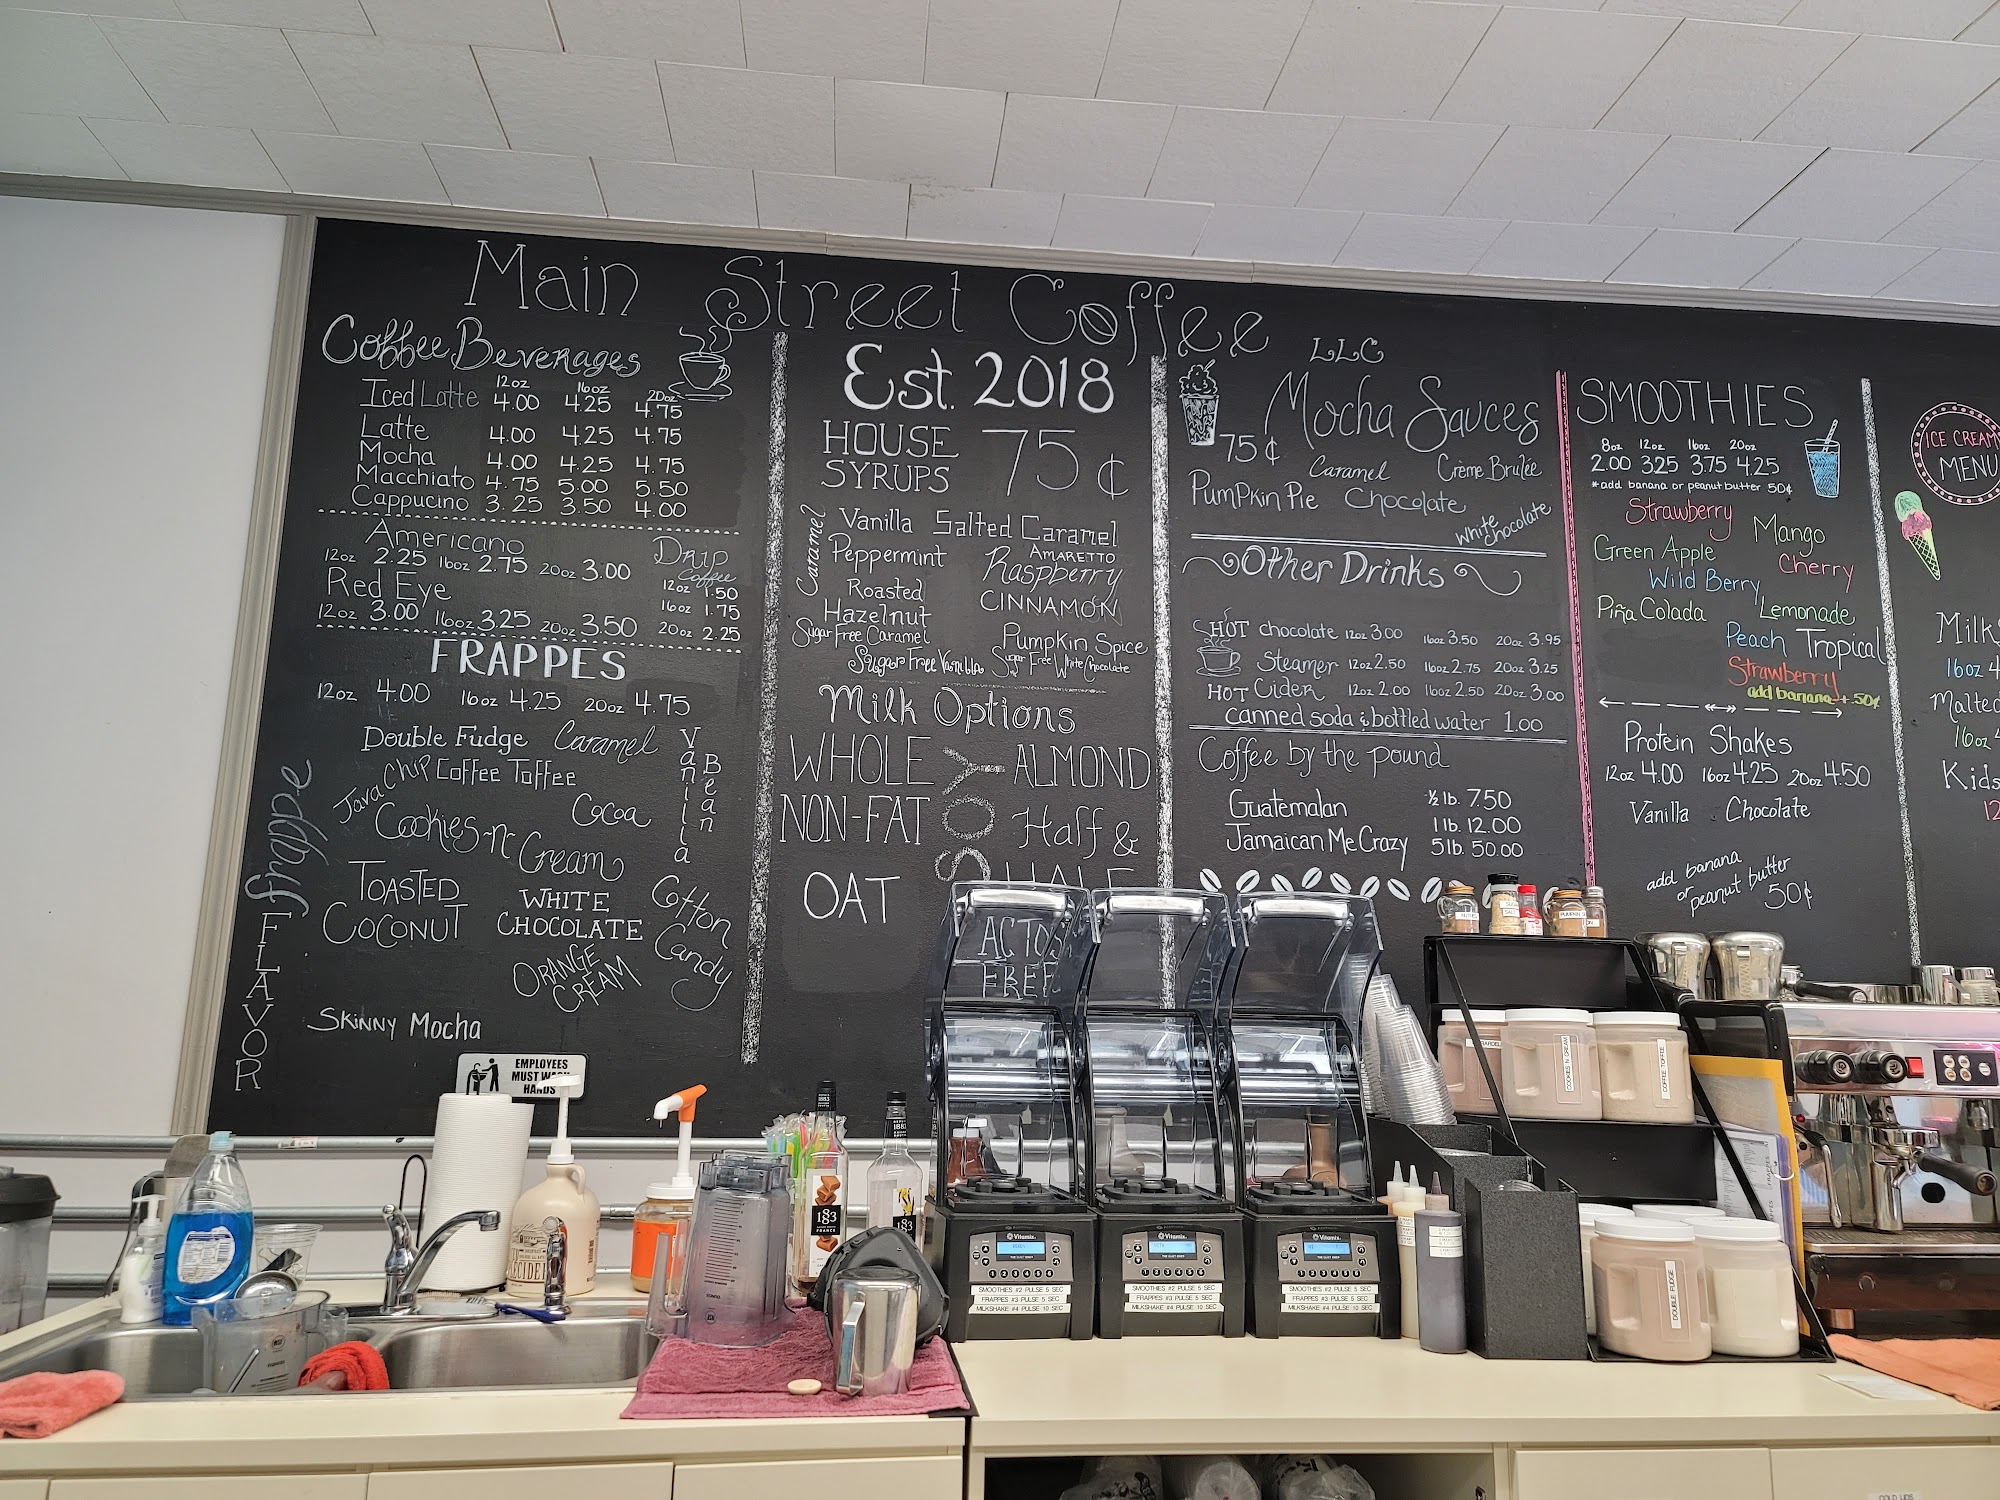 Main Street Coffee
LLC
Coffee Beverages
12oz 16oz 20oz
Iced Latte 4.00 4.25 4.75
Latte 4.00 4.25 4.75
Mocha 4.00 4.25 4.75
Macchiato 4.75 5.00 5.50
Cappucino 3.25 3.50 4.00
Americano
12oz 2.25 16oz 2.75 20oz 3.00
Red Eye
12oz 3.00 16oz 3.25 20oz 3.50
Drip
Coffee
12oz 1.50
16oz 1.75
20oz 2.25
FRAPPES
12oz 4.00 16oz 4.25 20oz 4.75
frappe
FLAVOR
Double Fudge
Caramel
Vanilla
Bean
Java Chip
Coffee Toffee
Cocoa
Cookies-n-Cream
TOASTED
COCONUT
WHITE
CHOCOLATE
Cotton
Candy
ORANGE
CREAM
SKINNY MOCHA
Est. 2018
HOUSE
SYRUPS
75¢
Caramel
Vanilla
Salted Caramel
Peppermint
AMARETTO
Raspberry
Roasted
Hazelnut
CINNAMON
Sugar Free Caramel
Pumpkin Spice
Sugar Free Vanilla
Sugar Free White Chocolate
Milk Options
WHOLE
SOY
ALMOND
NON-FAT
Half &
HALF
OAT
FREE
Mocha Sauces
75¢
Caramel
Crème Brulée
Pumpkin Pie
Chocolate
White
chocolate
Other Drinks
HOT chocolate 12oz 3.00 16oz 3.50 20oz 3.95
Steamer 12oz 2.50 16oz 2.75 20oz 3.25
HOT Cider 12oz 2.00 16oz 2.50 20oz 3.00
canned soda & bottled water 1.00
Coffee by the pound
Guatemalan
Jamaican Me Crazy
½ lb. 7.50
1 lb. 12.00
5 lb. 50.00
SMOOTHIES
8oz 12oz 16oz 20oz
2.00 3.25 3.75 4.25
*add banana or peanut butter 50¢
Strawberry
Mango
Green Apple
Cherry
Wild Berry
Piña Colada
Lemonade
Peach
Tropical
Strawberry
add banana + .50¢
Protein Shakes
12oz 4.00 16oz 4.25 20oz 4.50
Vanilla
Chocolate
add banana
or
peanut butter
50¢
ICE CREAM
MENU
16oz
Malted
16oz
Kids
EMPLOYEES
MUST WASH
HANDS
1883
183
FRANCE
183
Vitamix.
SMOOTHIES #2 PULSE 5 SEC
FRAPPES #3 PULSE 5 SEC
MILKSHAKE #4 PULSE 10 SEC
Vitamix.
SMOOTHIES #2 PULSE 5 SEC
FRAPPES #3 PULSE 5 SEC
MILKSHAKE #4 PULSE 10 SEC
Vitamix.
SMOOTHIES #2 PULSE 5 SEC
FRAPPES #3 PULSE 5 SEC
MILKSHAKE #4 PULSE 10 SEC
COOKIES N CREAM
COFFEE TOFFEE
DOUBLE FUDGE